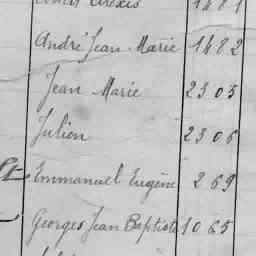 Alexis 1481
André Jean Marie 1482
Jean Marie 2305
Julien 2306
Emmanuel Eugène 269
Georges Jean Baptiste 1065